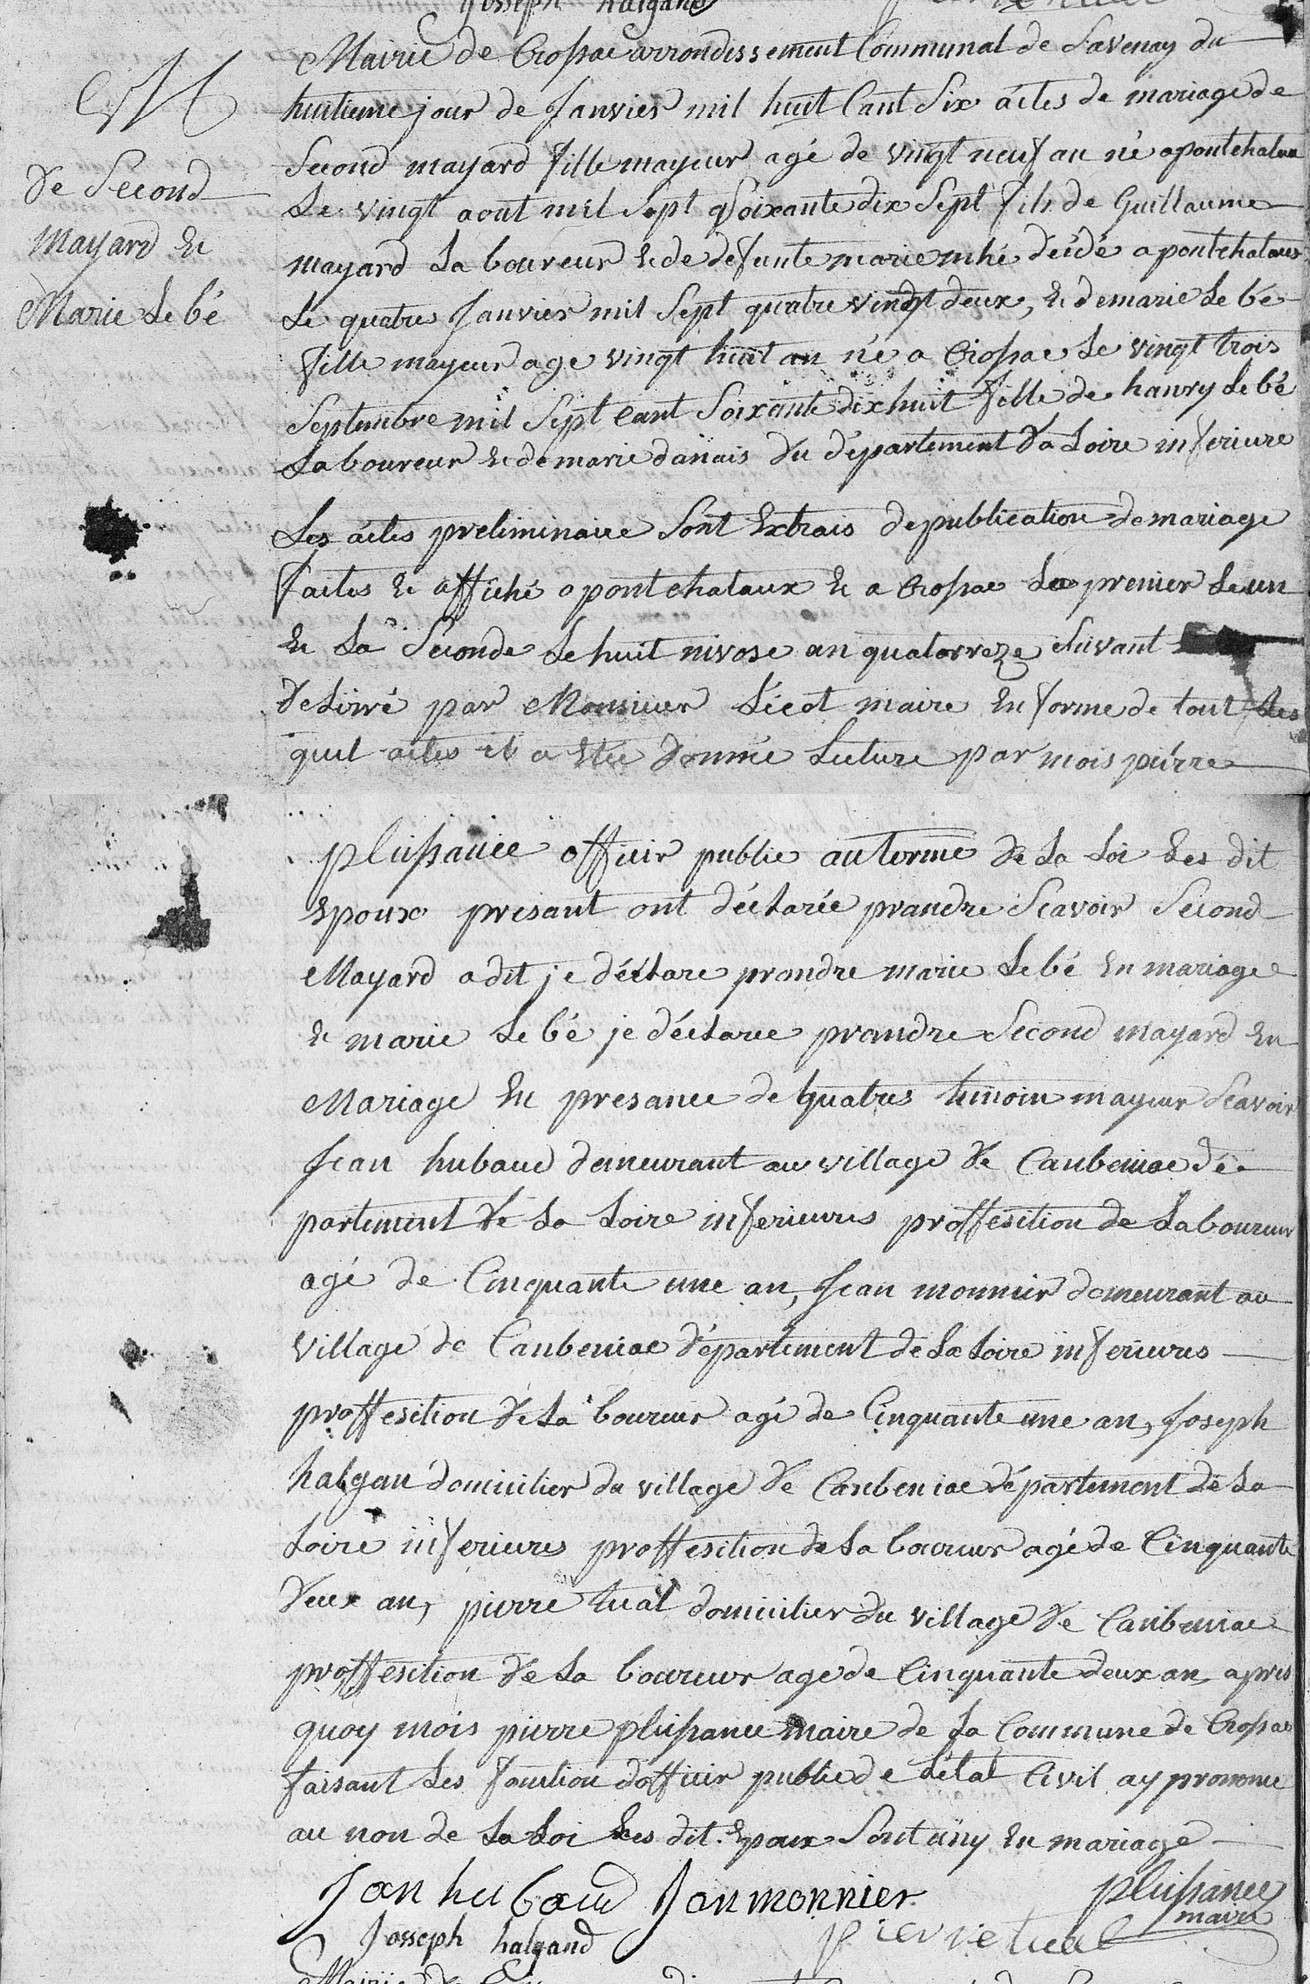 Josseph halgand
M
de Second
Mayard Et
Marie Le bé
Mairie de Crossac arrondissement Communal de Savenay du
huitieme jour de Janvier mil huit Cant Six actes de mariage de
Second mayard fille mayeur agé de vingt neuf an né a pontchataux
Le vingt aout mil Sept Soixante dix Sept fils de Guillaume
mayard La boureur Et de defunte marie mhé déidé a pontchataux
Le quatre Janvier mil Sept quatre vingt deux, Et de marie Le bé
fille mayeur age vingt huit an né a Crossac Le vingt trois
Septembre mil Sept cant Soixante dix huit fille de hanry Le bé
La boureur Et de marie danais du département da Loire inferieure
Les actes preliminaire Sont Extrais de publication de mariage
faites Et affiché a pontchataux Et a Crossac La premier Le un
Et La Seconde Le huit nivose an quatorreze Suivant
deLivré par Monsieur Lécot maire En forme de tout Les
quel actes il a Etée donnée Lecture par mois piérre
plissancee officir public au terme de La Loi Les dit
Epoux présant ont déclarée prandre Scavoir Second
Mayard a dit je déclare prandre marie Le bé En mariage
Et marie Le bé je déclaree prandre Second mayard En
Mariage En presance de quatres temoin mayeur Scavoir
Jean hubaud demeurant au village de Caubeniac dé
partement de La Loire inferieures proffesition de Laboureur
agé de Cinquante une an, Jean monnier demeurant au
village de Caubeniac département de La Loire inferieures
proffesition de La boureur agé de Cinquante une an, Joseph
halgan domicilier du village de Caubeniac département de La
Loire inferieures proffesition de La boureur agé de Cinquante
deux an, pierre tual domicilier du village de Caubeniac
proffesition de La boureur age de Cinquante deux an, apres
quoy mois pierre plissancee maire de La Commune de Crossac
faisant Les fonction dofficir public de Létat Civil ay prononcé
au non de La Loi Les dit Epoux Sont uny En mariage
Jan hubaud Janmonnier plissancee
maire
Josseph halgand pierre tual